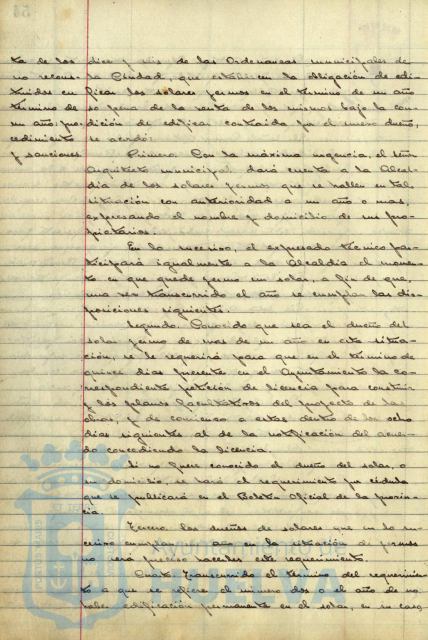 ta de los
no recons
truidos en
término de
un año: pro
cedimiento
y sanciones
diez y seis de las Ordenanzas municipales de
la Ciudad, que establecen la obligación de edi-
ficar los solares yermos en el término de un año
so pena de la venta de los mismos bajo la con-
dición de edificar contraida por el nuevo dueño,
se acordó:
Primero. Con la máxima urgencia, el señor
Arquitecto municipal dará cuenta a la Alcal-
día de los solares yermos que se hallen en tal
situación con anterioridad a un año o mas,
expresando el nombre y domicilio de sus pro-
pietarios.
En lo sucesivo, el expresado técnico par-
ticipará igualmente a la Alcaldía el momen-
to en que quede yermo un solar, a fin de que,
una vez transcurrido el año se cumplan las dis-
posiciones siguientes.
Segundo. Conocido que sea el dueño del
solar yermo de mas de un año en esta situa-
ción, se le requerirá para que en el término de
quince días presente en el Ayuntamiento la co-
rrespondiente petición de licencia para construir
y los planos facultativos del proyecto de las
obras, y dé comienzo a estas dentro de los ocho
días siguientes al de la notificación del acuer-
do concediendo la licencia.
Si no fuere conocido el dueño del solar, o
su domicilio, se hará el requerimiento por cédula
que se publicará en el Boletín Oficial de la provin-
cia.
Tercero. Los dueños de solares que en lo su-
cesivo cumplan un año en la situación de yermos
no será preciso hacerles este requerimiento.
Cuarto. Transcurrido el término del requerimien-
to a que se refiere el número dos o el año de no
haber edificación permanente en el solar, en su caso,